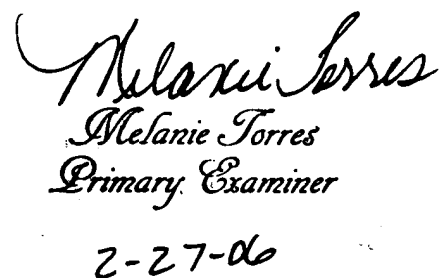 Melanie Torres
Melanie Torres
Primary Examiner
2-27-06